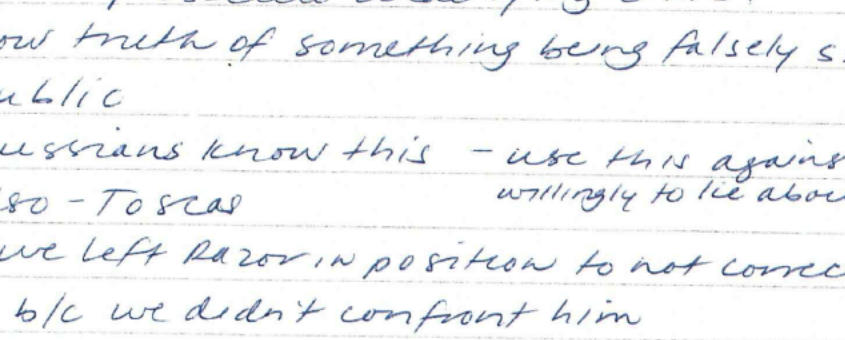 ow truth of something being falsely s
ublic
ussians know this - use this agains
willingly to lie abou
lso - Toscas
we left Razor in position to not correc
b/c we didn't confront him